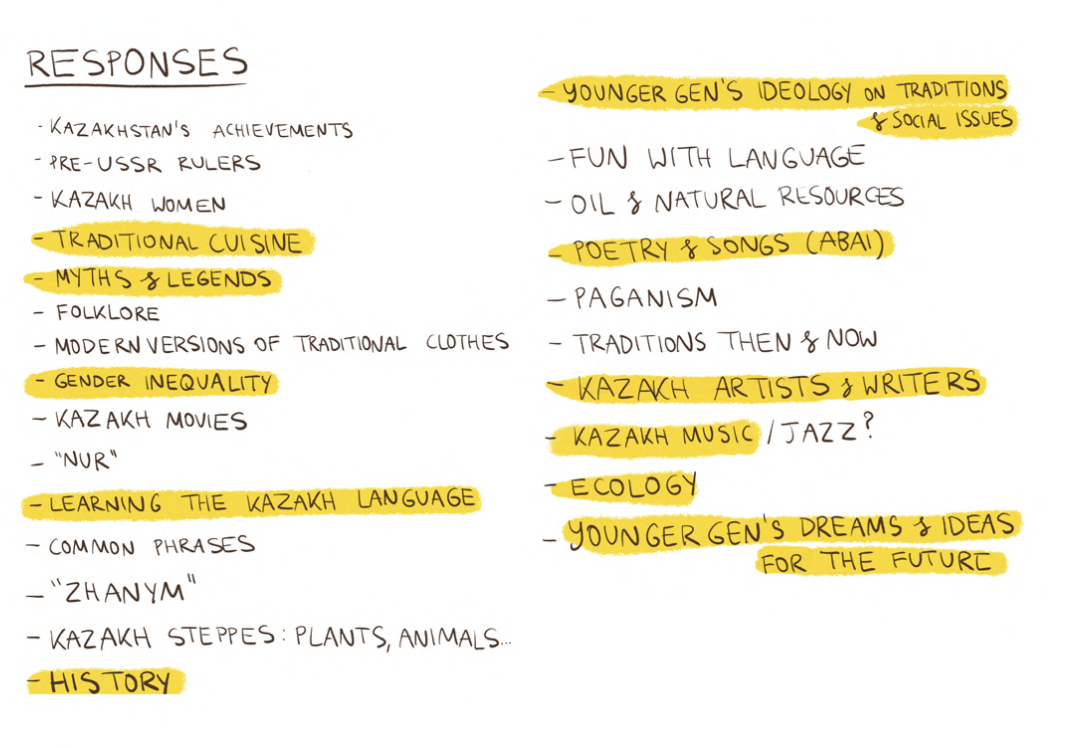 RESPONSES
- KAZAKHSTAN'S ACHIEVEMENTS
- PRE-USSR RULERS
- KAZAKH WOMEN
- TRADITIONAL CUISINE
- MYTHS & LEGENDS
- FOLKLORE
- MODERN VERSIONS OF TRADITIONAL CLOTHES
- GENDER INEQUALITY
- KAZAKH MOVIES
- "NUR"
- LEARNING THE KAZAKH LANGUAGE
- COMMON PHRASES
- "ZHANYM"
- KAZAKH STEPPES: PLANTS, ANIMALS...
- HISTORY
- YOUNGER GEN'S IDEOLOGY ON TRADITIONS
& SOCIAL ISSUES
- FUN WITH LANGUAGE
- OIL & NATURAL RESOURCES
- POETRY & SONGS (ABAI)
- PAGANISM
- TRADITIONS THEN & NOW
- KAZAKH ARTISTS & WRITERS
- KAZAKH MUSIC / JAZZ?
- ECOLOGY
- YOUNGER GEN'S DREAMS & IDEAS
FOR THE FUTURE